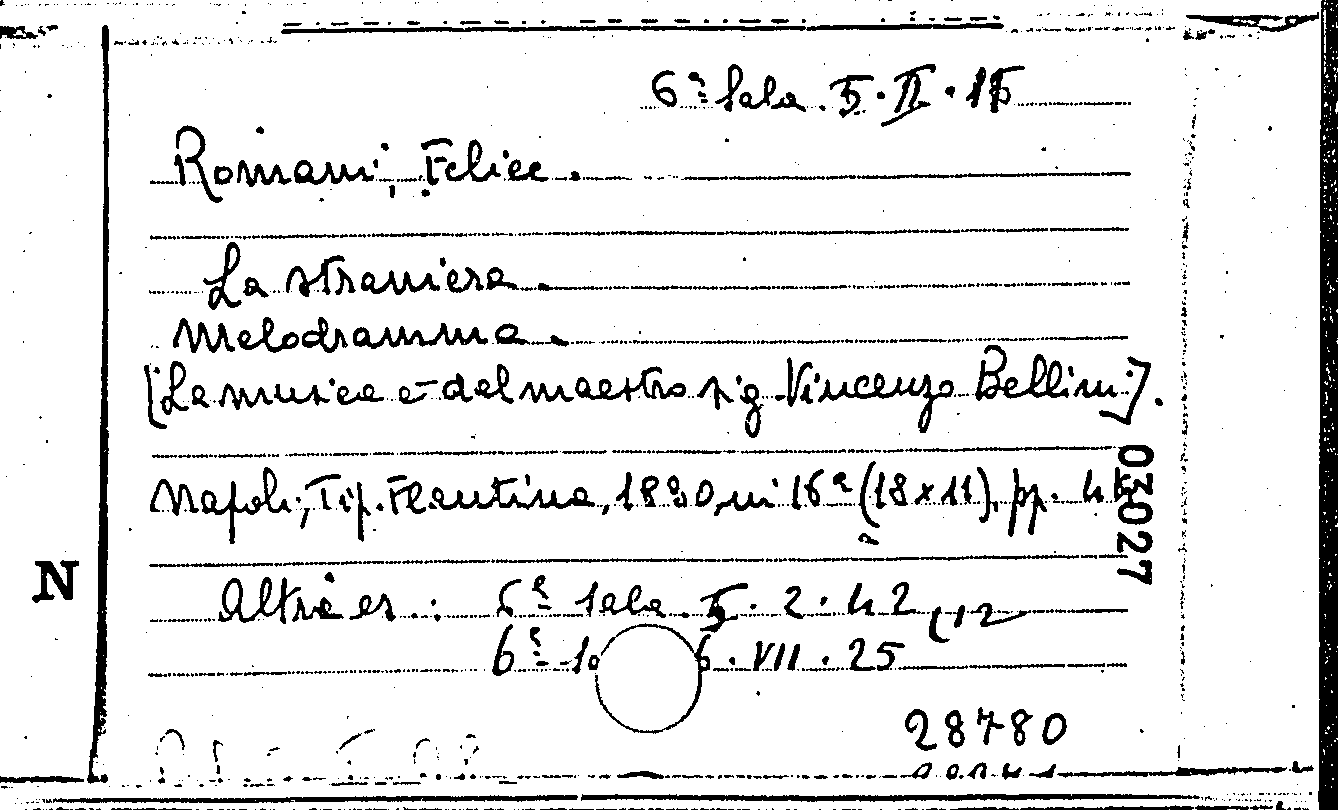 6ª Sala. 5. II. 15
Romani, Felice.
La straniera.
Melodramma.
[La musica è del maestro sig. Vincenzo Bellini].
Napoli, Tip. Flautina, 1830, in 16º (18x11), pp.
03027
N
Altri es.: 6ª Sala. 5. 2. 42 (12
6ª 6. VII. 25
28780